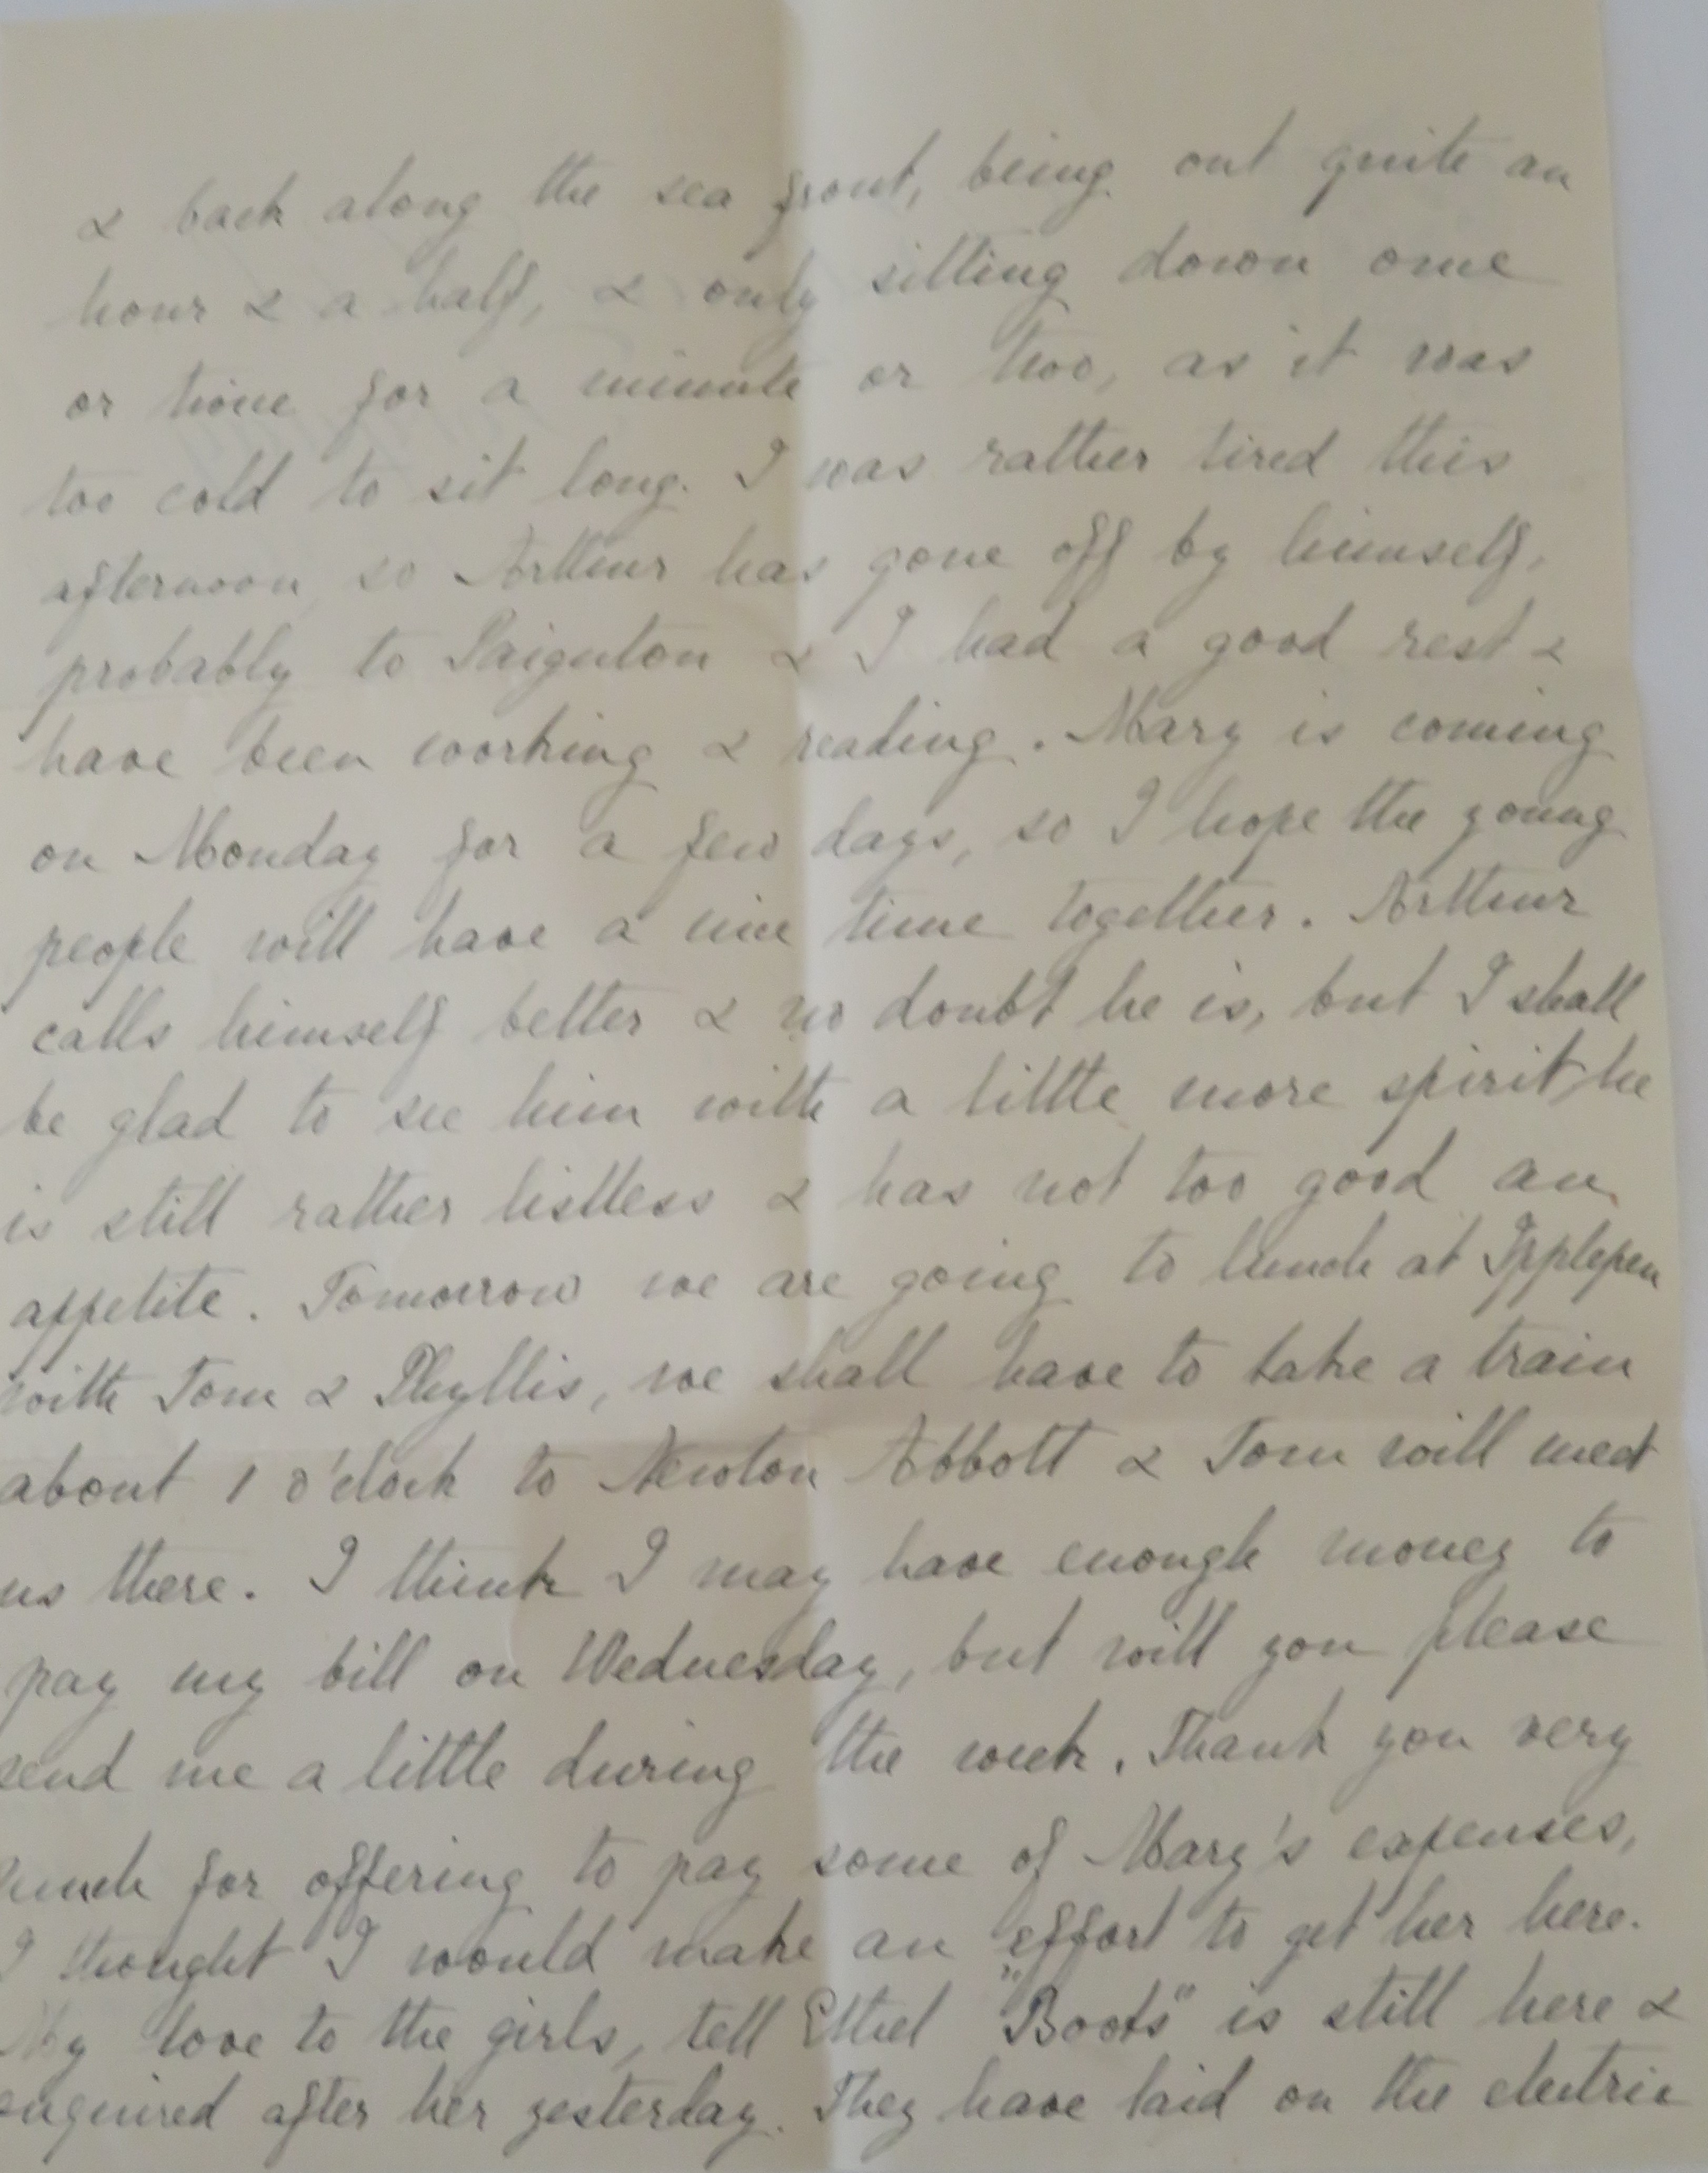 & back along the sea front, being out quite an
hour & a half, & only sitting down once
or twice for a minute or two, as it was
too cold to sit long. I was rather tired this
afternoon, so Arthur has gone off by himself,
probably to Paignton & I had a good rest &
have been working & reading. Mary is coming
on Monday for a few days, so I hope the young
people will have a nice time together. Arthur
calls himself better & no doubt he is, but I shall
be glad to see him with a little more spirit, he
is still rather listless & has not too good an
appetite. Tomorrow we are going to lunch at Ipplepen
with Tom & Phyllis, we shall have to take a train
about 1 o'clock to Newton Abbott & Tom will meet
us there. I think I may have enough money to
pay my bill on Wednesday, but will you please
send me a little during the week. Thank you very
much for offering to pay some of Mary's expenses,
I thought I would make an effort to get her here.
My love to the girls, tell Ethel "Boots" is still here &
enquired after her yesterday. They have laid on the electric